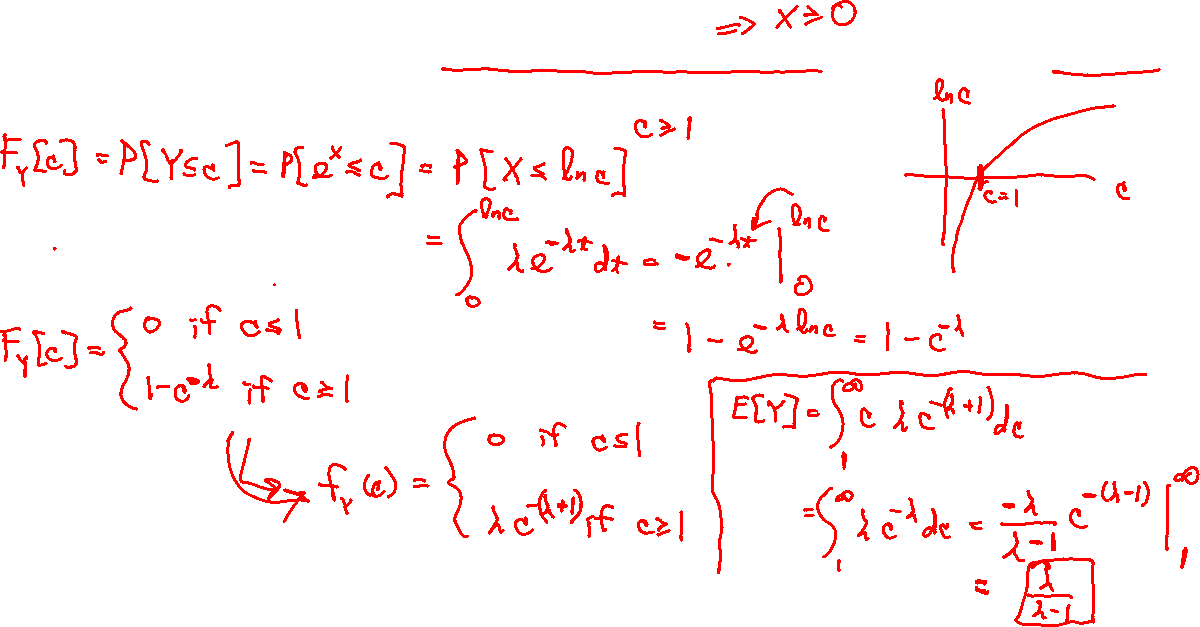 ⇒ X ≥ 0
ln c
c
c=1
F_Y[c] = P[Y ≤ c] = P[e^X ≤ c] = P[X ≤ ln c] c ≥ 1
= ∫_0^{ln c} λe^{-λt}dt = -e^{-λt} |_0^{ln c}
= 1 - e^{-λ ln c} = 1 - c^{-λ}
F_Y[c] = { 0 if c ≤ 1
1-c^{-λ} if c ≥ 1
f_Y(c) = { 0 if c ≤ 1
λc^{-(λ+1)} if c ≥ 1
E[Y] = ∫_1^∞ c λc^{-(λ+1)}dc
= ∫_1^∞ λc^{-λ}dc = \frac{-λ}{λ-1} c^{-(λ-1)} |_1^∞
= \frac{λ}{λ-1}